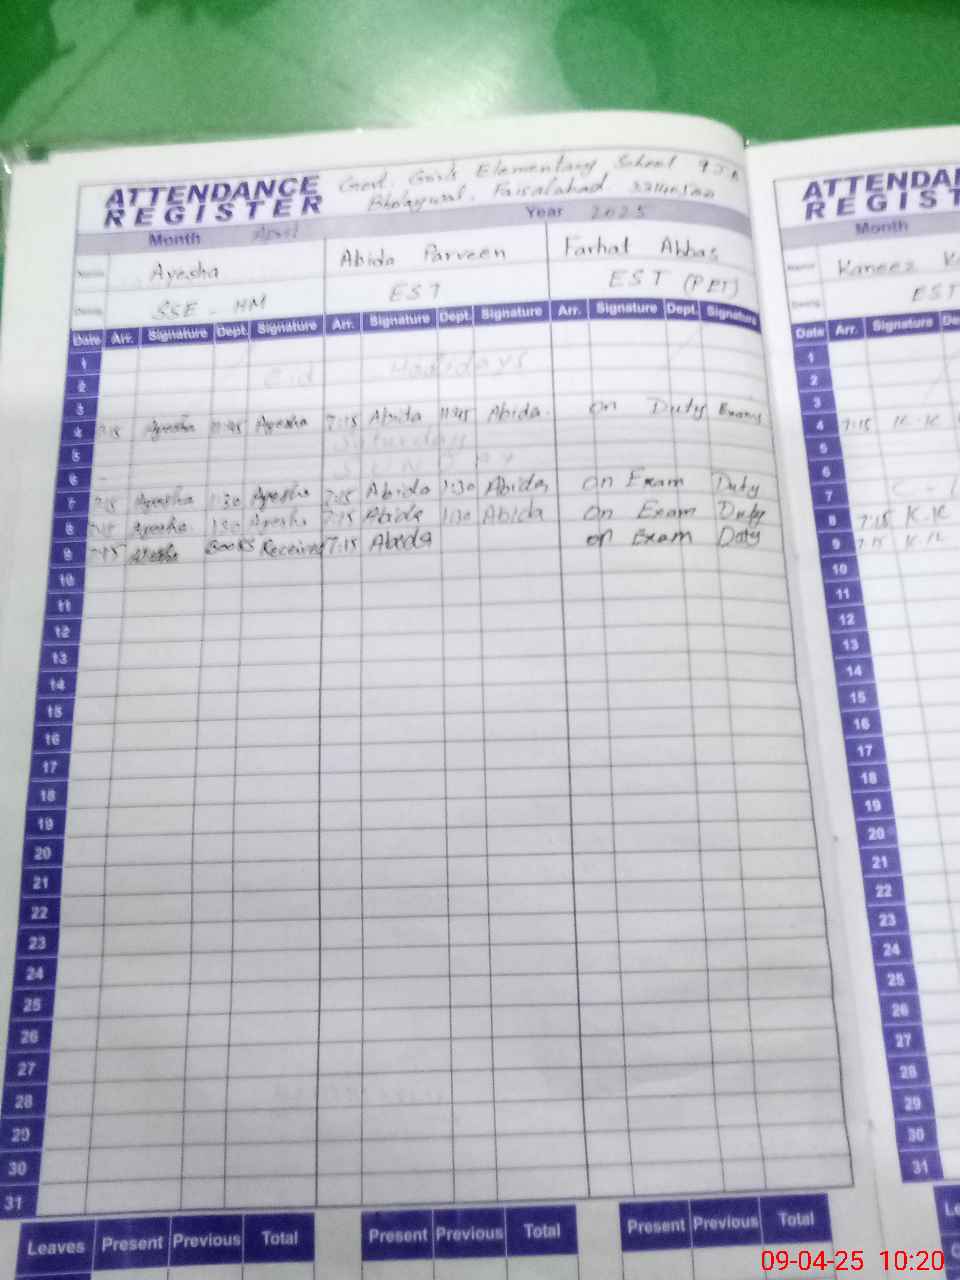 ATTENDANCE REGISTER
Govt. Girls Elementary School
Faisalabad
Month April Year 2025
Ayesha Abida Parveen Farhat Abbas
SSE - HM EST EST (PET)
Date Arr. Signature Dept. Signature Arr. Signature Dept. Signature Arr. Signature Dept. Signature
1
2 Eid Holidays
3
4 Ayesha 11:45 Ayesha 7:15 Abida 11:45 Abida On Duty Exams
5 Saturday
6 SUNDAY
7 7:15 Ayesha 1:30 Ayesha 7:15 Abida 1:30 Abida On Exam Duty
8 Ayesha 1:30 Ayesha 7:15 Abida 1:30 Abida On Exam Duty
9 Ayesha Books Received 7:15 Abida on Exam Duty
10
11
12
13
14
15
16
17
18
19
20
21
22
23
24
25
26
27
28
29
30
31
Leaves Present Previous Total Present Previous Total Present Previous Total
Month
Kaneez
EST
Date Arr. Signature
1
2
3
4 7:15 K.K
5
6
7
8 7:15 K.K
9 7:15 K.K
10
11
12
13
14
15
16
17
18
19
20
21
22
23
24
25
26
27
28
29
30
31
09-04-25 10:20